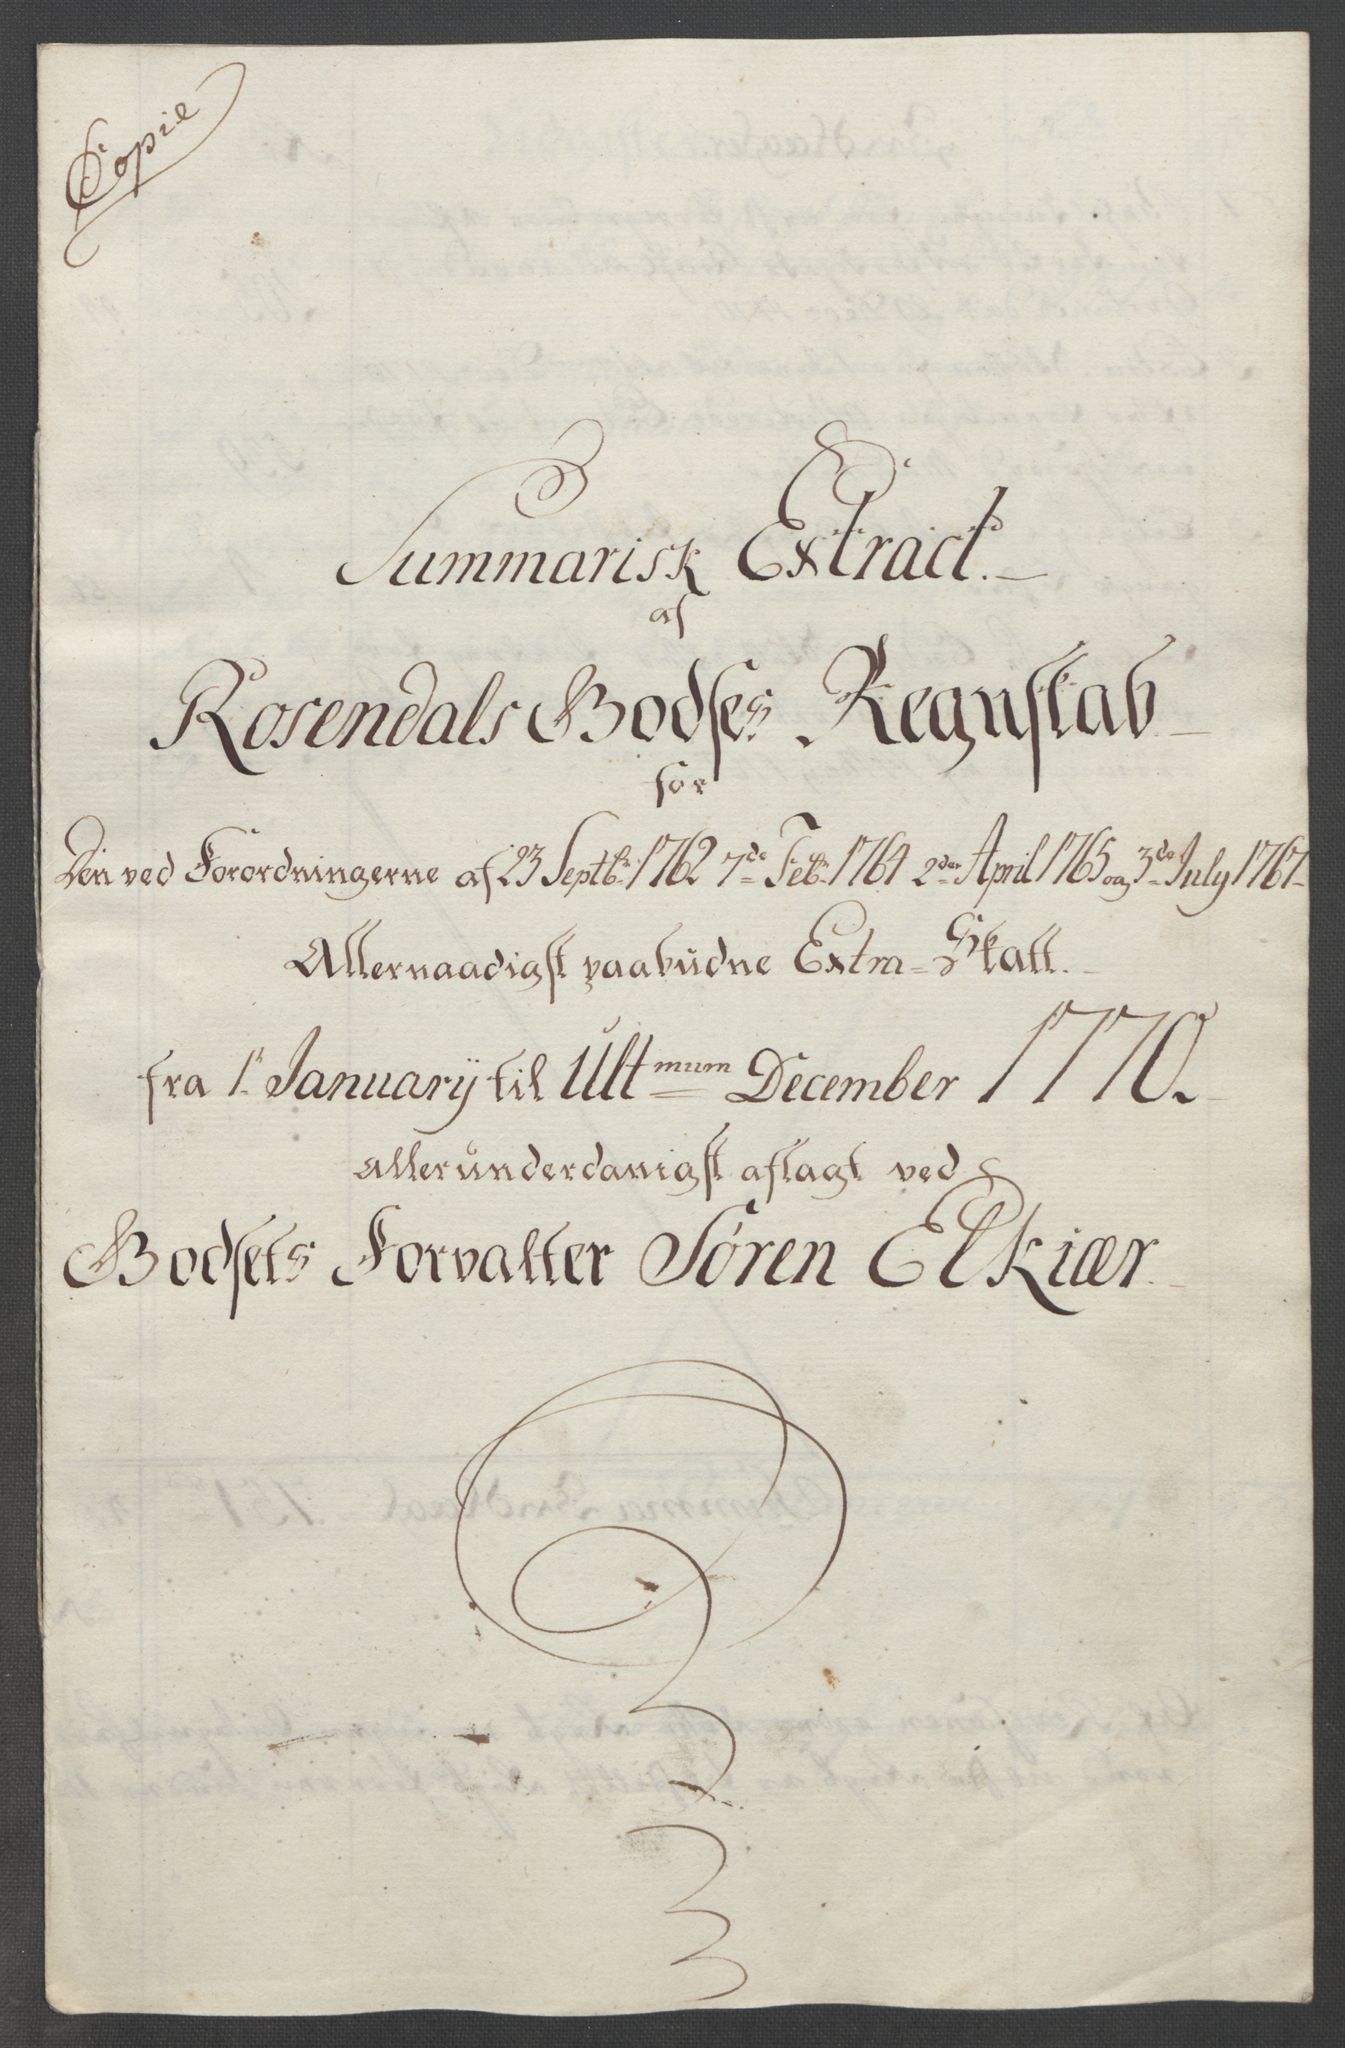 Copie
Summarisk Extract.
af
Rosendals Godses Regnskab
for
Den ved Forordningerne af 23 Septbr. 1762 7de Febr. 1764 2den April 1765 og 3de July 1767
Allernaadigst paabudne Extra-Skatt.
fra 1t. Januarij til Ultmum December 1770.
allerunderdanigst aflagt ved
Godsets Forvalter Søren Elkiær.